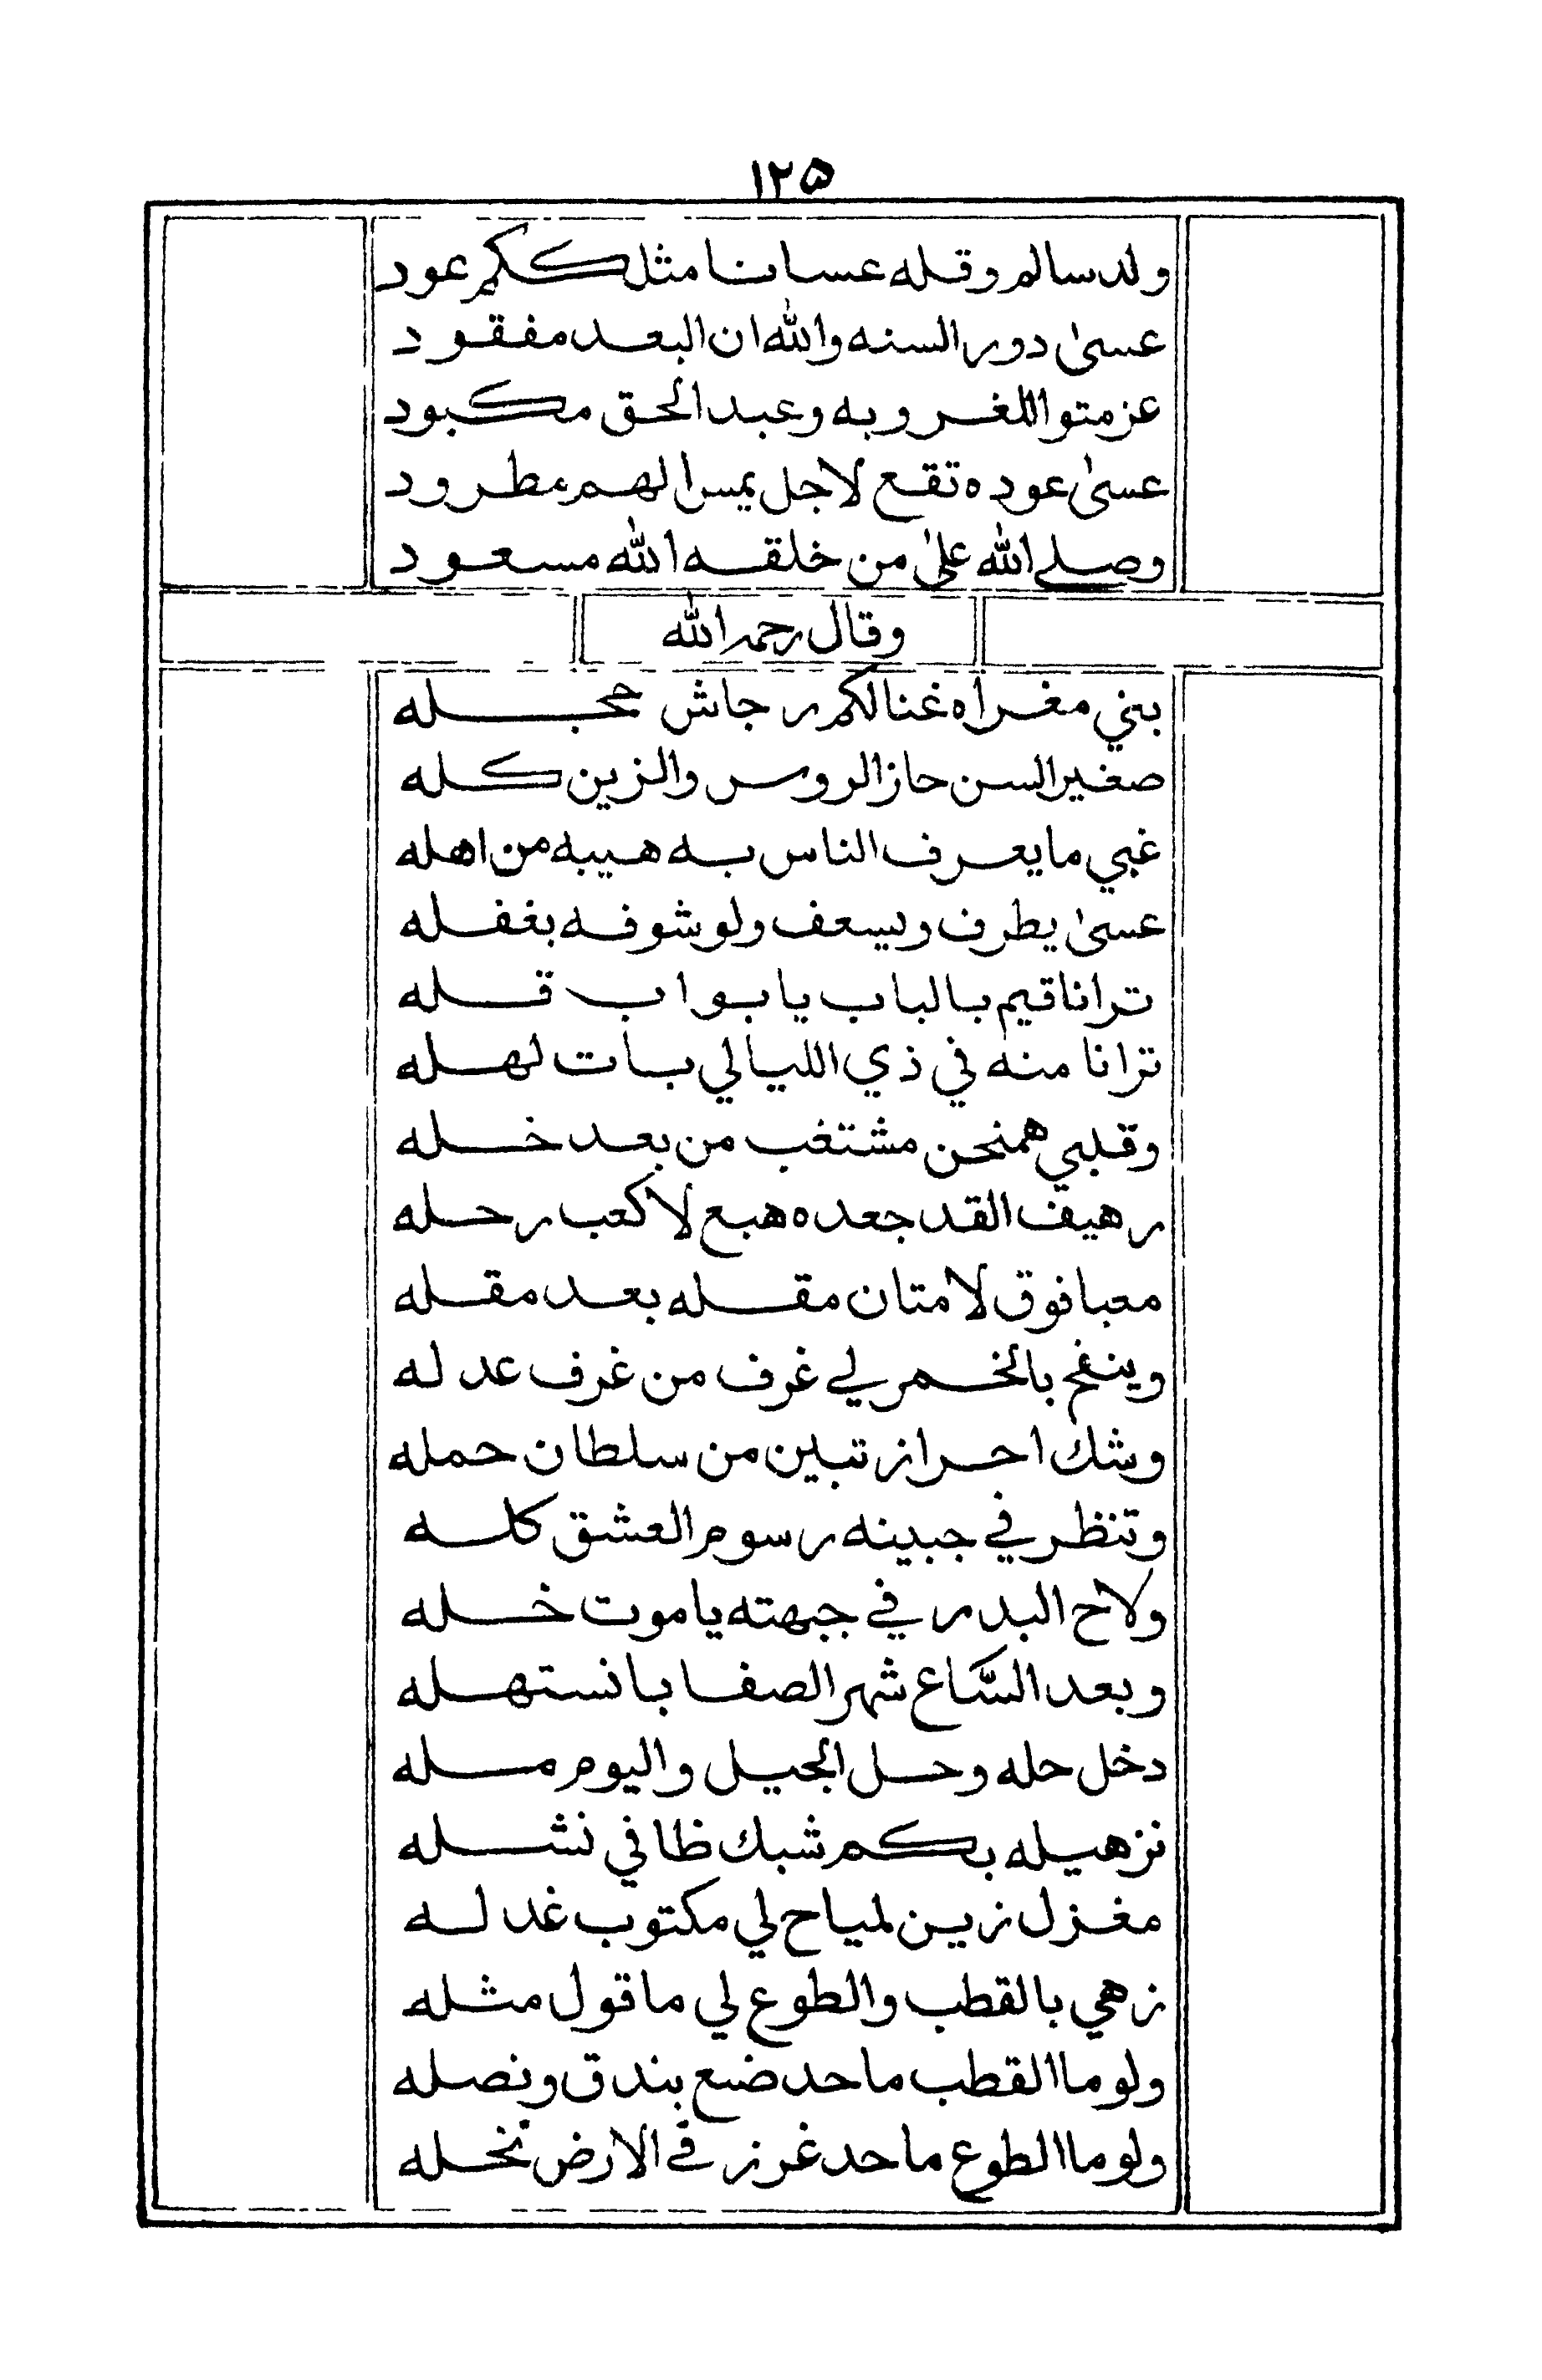 ١٢٥
ولد سالم وقله عسانا مثلكم عود
عسىٰ دور السنه والله ان البعد مفقود
عزمتوا للغروبه وعبد الحق مكبود
عسىٰ عوده تقع لاجل يمس الهم مطرود
وصلى الله علىٰ من خلقه الله مسعود
وقال رحمه الله
بني مغراه غنالكم رجاش حجله
صغير السن حاز الروس والزين كله
غبي ما يعرف الناس به هيبه من اهله
عسىٰ يطرف ويسعف ولو شوفه بغفله
ترانا قيم بالباب يا بواب قله
ترانا منه في ذي الليالي بات لهله
وقلبي ممنحن مشتغب من بعد خله
رهيف القد جعده هبع لا كعب رحله
معبا فوق لامتان مقله بعد مقله
وينفح بالخمر لي غرف من غرف عدله
وشك احراز تبين من سلطان حمله
وتنظر في جبينه رسوم العشق كله
ولاح البدر في جبهته يا موت خله
وبعد السّاع شهر الصفا بانستهله
دخل حله وحل الجيل واليوم مله
نزهيله بكم شبك ظافي نشله
مغزل زين لمياح لي مكتوب غدله
زهي بالقطب والطوع لي ماقول مثله
ولوما القطب ماحد ضع بندق ونصله
ولوما الطوع ماحد غرز في الارض نخله